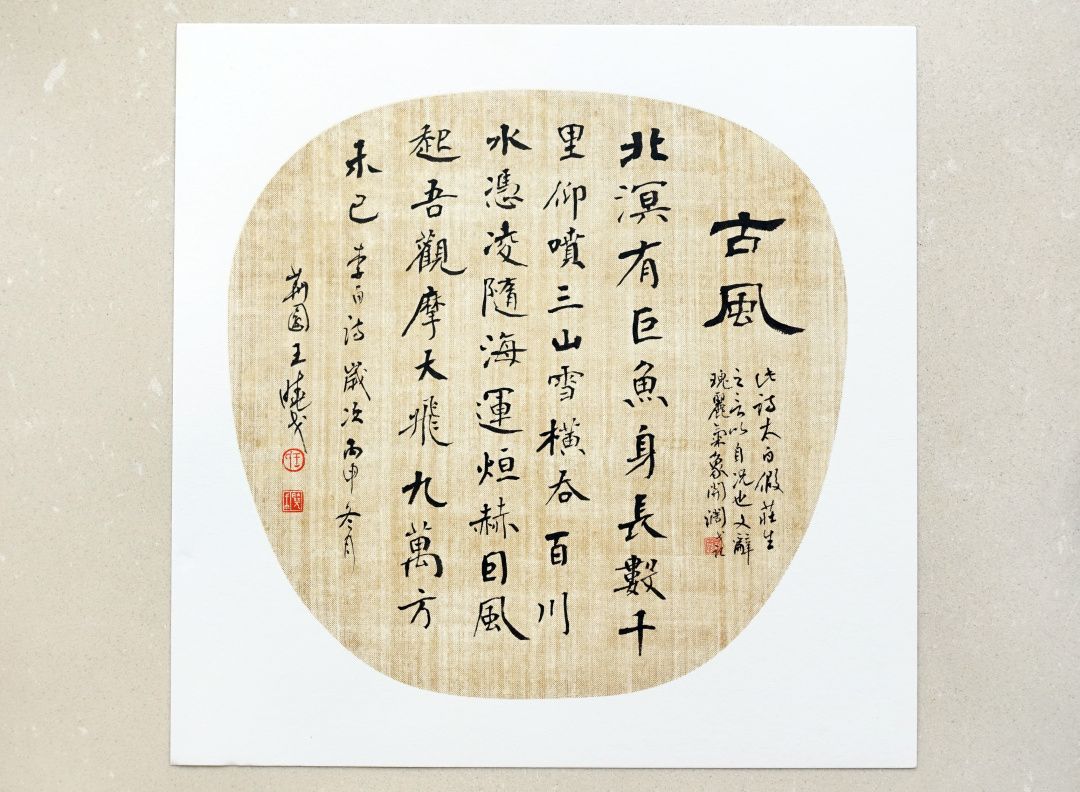 古風
此詩太白假莊生
之言以自况也文辭
瑰麗氣象開濶
北溟有巨魚身長數千
里仰噴三山雪橫吞百川
水憑凌隨海運烜赫因風
起吾觀摩天飛九萬方
未已 李白詩 歲次丙申冬月
荊園王曉戈